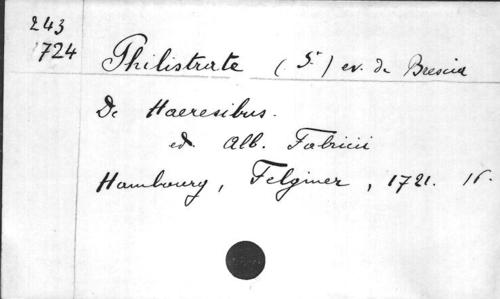 243
724
Philistrate (St) ev. de Brescia
De Haeresibus.
ed. Alb. Fabricii
Hambourg, Felginer, 1721. 16.